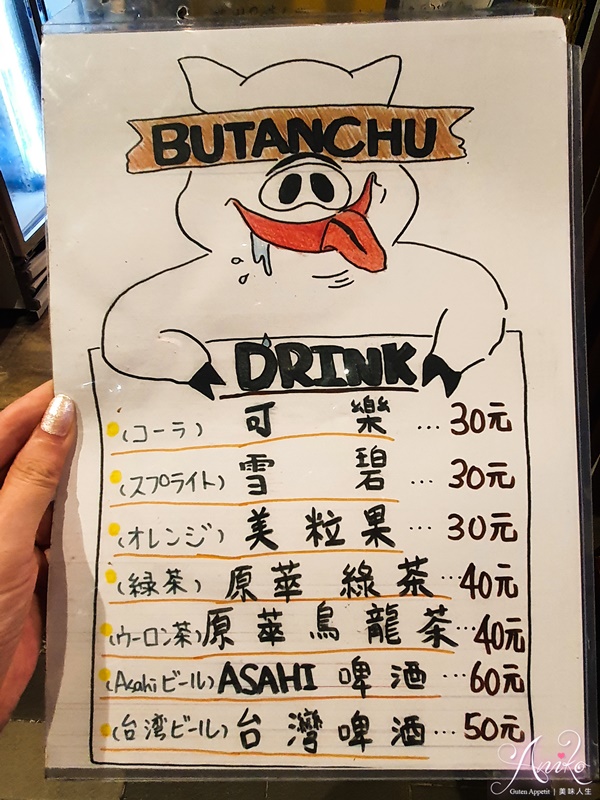 BUTANCHU
DRINK
(コーラ) 可樂 ... 30元
(スプライト) 雪碧 ... 30元
(オレンジ) 美粒果 ... 30元
(緑茶) 原萃 綠茶 ... 40元
(ウーロン茶) 原萃烏龍茶 ... 40元
(Asahiビール) ASAHI 啤酒 ... 60元
(台湾ビール) 台灣啤酒 ... 50元
Aniko
Guten Appetit | 美味人生